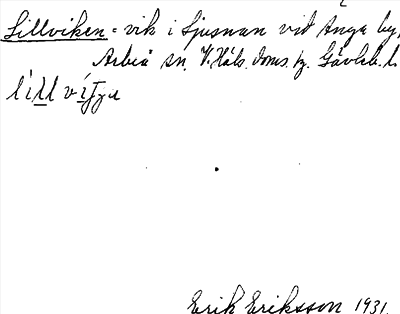 Lillviken = vik i Ljusnan vid Änga by,
Arbrå sn. V. Häls. doms. hg. Gävleb. l.
Erik Eriksson 1931.